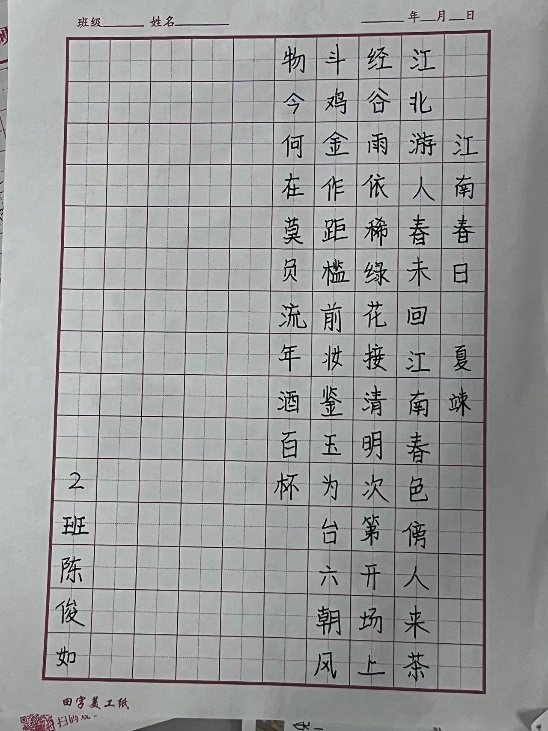 班级 姓名 年 月 日
江南春日 夏竦
江北游人春未回江南春色傍人来茶
经谷雨依稀绿花接清明次第开场上
斗鸡金作距槛前妆鉴玉为台六朝风
物今何在莫负流年酒百杯
2班陈俊如
田字美工纸